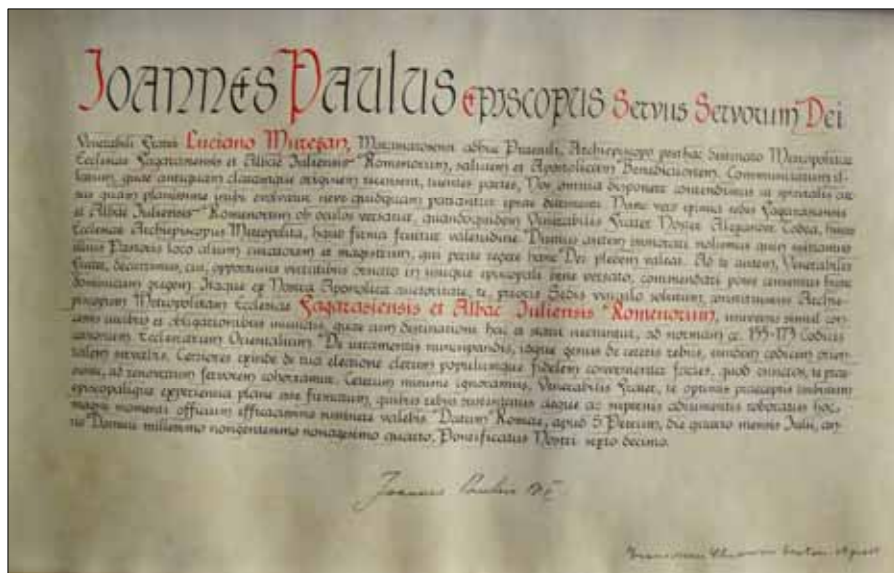 Joannes Paulus Episcopus Servus Servorum Dei
Venerabili Fratri Luciano Mureșan, Maramarosiensi adhuc Praesuli, Archiepiscopo posthac destinato Metropolitae
Ecclesiae Fagarasiensis et Albae Iuliensis Romenorum, salutem et Apostolicam Benedictionem. Communitatum il-
larum, quae antiquam claramque originem recensent, tuentes partes, Nos omnia disponere contendimus ut spiritalis ea-
rum quam planissime vitae evolvatur neve quidquam patiantur ipsae detrimenti. Nunc vero primum sedis Fagarasiensis
et Albae Iuliensis Romenorum ob oculos versatur, quandoquidem Venerabilis Frater Noster Alexander Todea, huius
Ecclesiae Archiepiscopus Metropolita, haud firma fruitur valetudine. Diutius autem immorari nolumus quin sufficiamus
illius Pastoris loco alium curatorem et magistrum, qui perite regere hanc Dei plebem valeat. Ad te autem, Venerabilis
Frater, decurrimus, cui, opportunis virtutibus ornato in usuque episcopali bene versato, commendari posse censemus hunc
dominicum gregem. Itaque ex Nostra Apostolica auctoritate, te, prioris Sedis vinculo solutum, constituimus Archie-
piscopum Metropolitam Ecclesiae Fagarasiensis et Albae Iuliensis Romenorum, universis simul con-
cessis iuribus et obligationibus iniunctis, quae cum destinatione hac et statu nectuntur, ad normam cc. 155-173 Codicis
canonum Ecclesiarum Orientalium. De iuramentis nuncupandis, idque genus de ceteris rebus, eundem codicem orien-
talem servabis. Certiores exinde de tua electione clerum populumque fidelem convenienter facies, quod cunctos, te prae-
eunte, ad renovatum fervorem cohortamur. Ceterum minime ignoramus, Venerabilis Frater, te optimis praeceptis imbutum
episcopalique experientia plane esse functum, quibus rebus sustentatus deque ac supernis adiumentis roboratus hoc
magni momenti officium efficacissime sustinere valebis. Datum Romae, apud S. Petrum, die quarto mensis Iulii, an-
no Domini millesimo nongentesimo nonagesimo quarto, Pontificatus Nostri sexto decimo.
Joannes Paulus PP. II